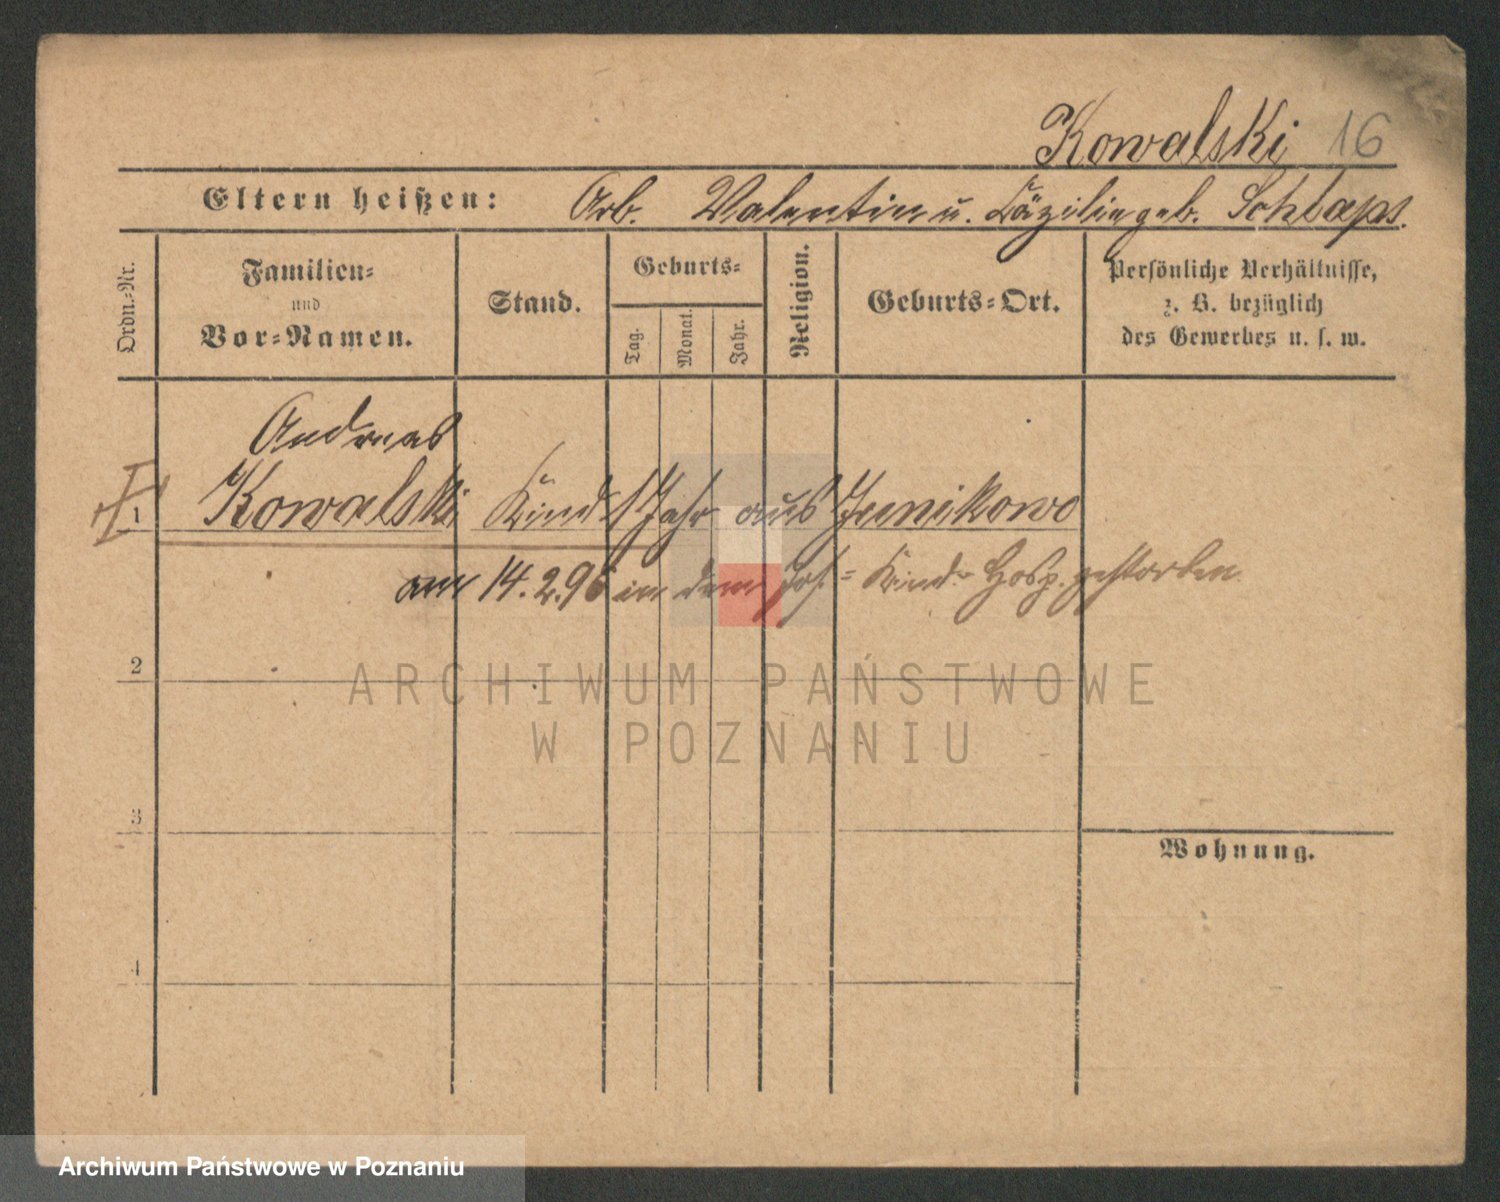 Kowalski 16
Eltern heißen: Arb. Valentin u. Cäzilie geb. Schlaps.
Ordn.-Nr.
Familien-
und
Vor-Namen.
Stand.
Geburts-
Tag.
Monat.
Jahr.
Religion.
Geburts-Ort.
Persönliche Verhältnisse,
z. B. bezüglich
des Gewerbes u. s. w.
Andreas
1 Kowalski Kind 1 Jahr aus Junikowo
am 14.2.96 in dem Jos.- Kind.- Hosp. gestorben
2
ARCHIWUM PAŃSTWOWE
W POZNANIU
3
Wohnung.
4
Archiwum Państwowe w Poznaniu